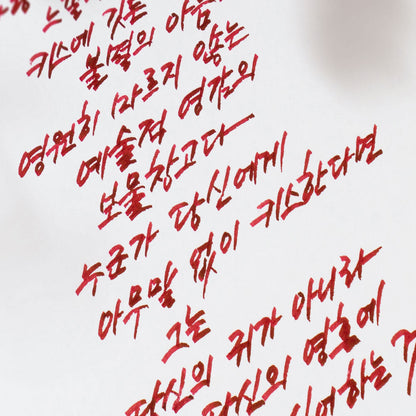 키스에 깃든
불멸의
영원히 마르지 않는
예술적 영감의
보물창고다
누군가 당신에게
아무말 없이 키스한다면
그는
당신의 귀가 아니라
당신의 영혼에